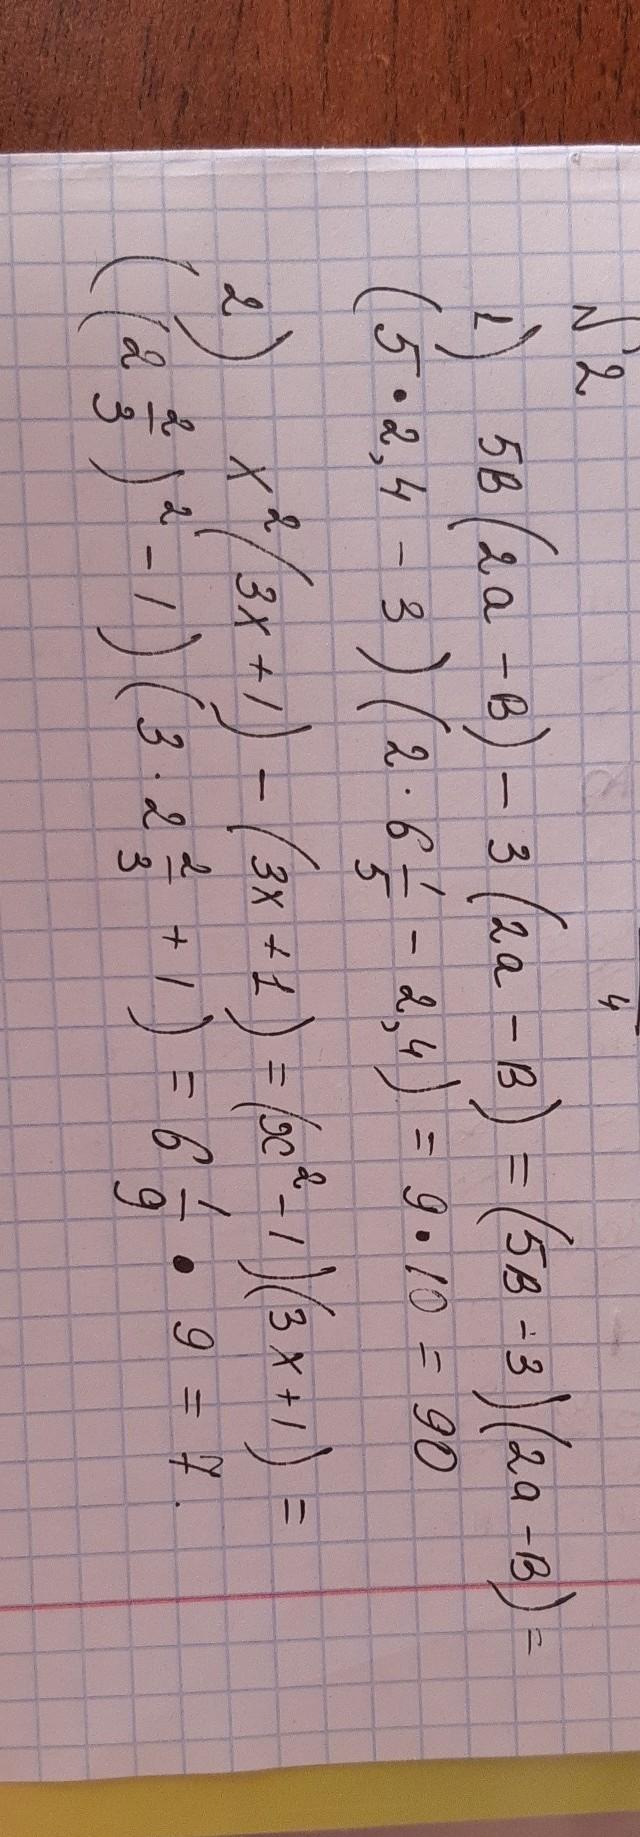 № 2
1) 5в(2а - в) - 3(2а - в) = (5в - 3)(2а - в) =
(5 · 2,4 - 3)(2 · 6 1/5 - 2,4) = 9 · 10 = 90
2) x²(3x + 1) - (3x + 1) = (x² - 1)(3x + 1) =
((2 2/3)² - 1)(3 · 2 2/3 + 1) = 6 1/9 · 9 = 7.
4